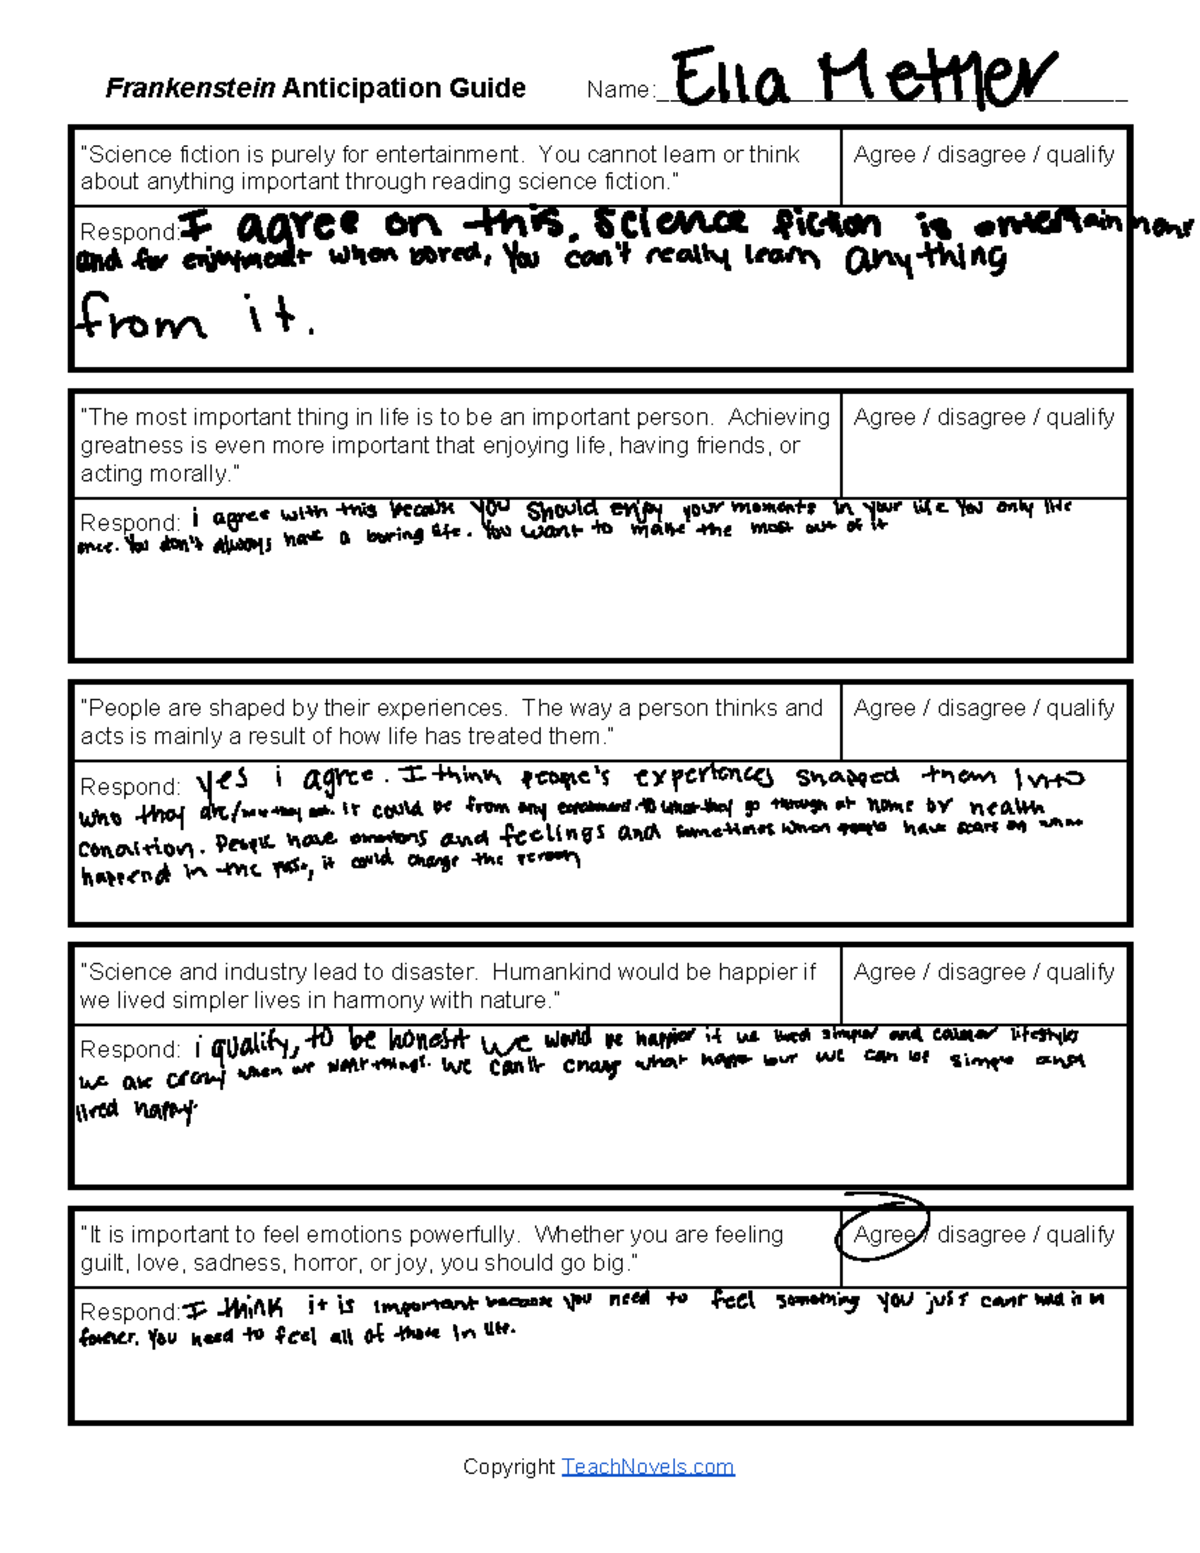 Frankenstein Anticipation Guide Name: Ella Metner
"Science fiction is purely for entertainment. You cannot learn or think Agree / disagree / qualify
about anything important through reading science fiction."
Respond: I agree on this. Science fiction is
and for enjoyment when bored, You can't really learn anything
from it.
"The most important thing in life is to be an important person. Achieving Agree / disagree / qualify
greatness is even more important that enjoying life, having friends, or
acting morally."
Respond: i agree with this because you should enjoy your moments in your life You only live
once. You don't always have a boring life. You want to make the most out of it
"People are shaped by their experiences. The way a person thinks and Agree / disagree / qualify
acts is mainly a result of how life has treated them."
Respond: yes i agree. I think people's experiences snapped them into
who they are/ it could be from any to what they go through at home or health
condition. People have emotions and feelings and sometimes when people have scars on
happend in the past, it could change the person
"Science and industry lead to disaster. Humankind would be happier if Agree / disagree / qualify
we lived simpler lives in harmony with nature."
Respond: i qualify, to be honest we would be happier if we lived simpler and calmer lifestyles
we are crazy when we want things. We can't change what happen but we can be simple and
lived happy.
"It is important to feel emotions powerfully. Whether you are feeling Agree / disagree / qualify
guilt, love, sadness, horror, or joy, you should go big."
Respond: I think it is important because you need to feel something you just can't hold it in
forever. You need to feel all of those in life.
Copyright TeachNovels.com